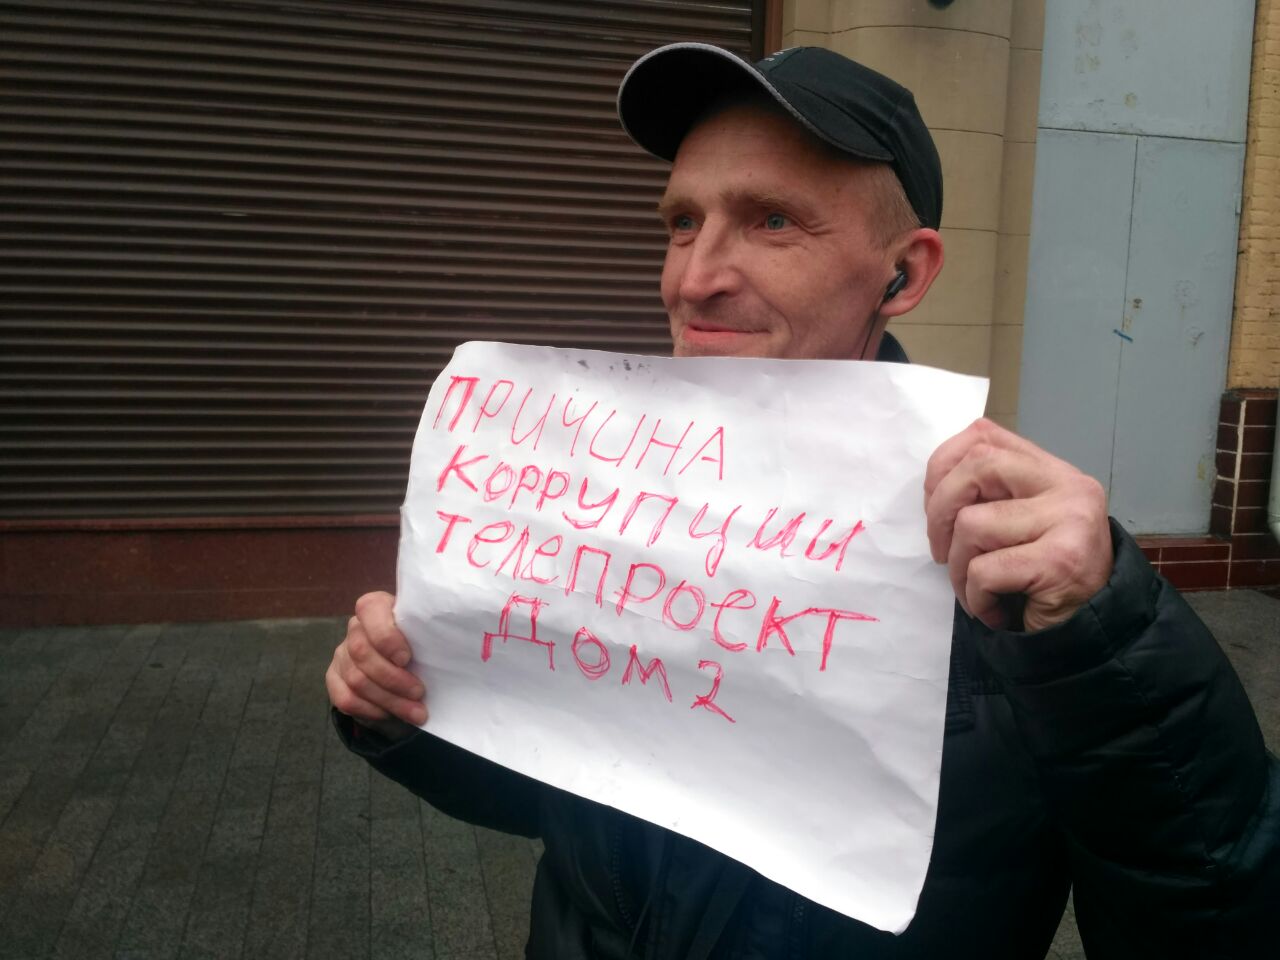 ПРИЧИНА
КОРРУПЦИИ
ТЕЛЕПРОЕКТ
ДОМ 2